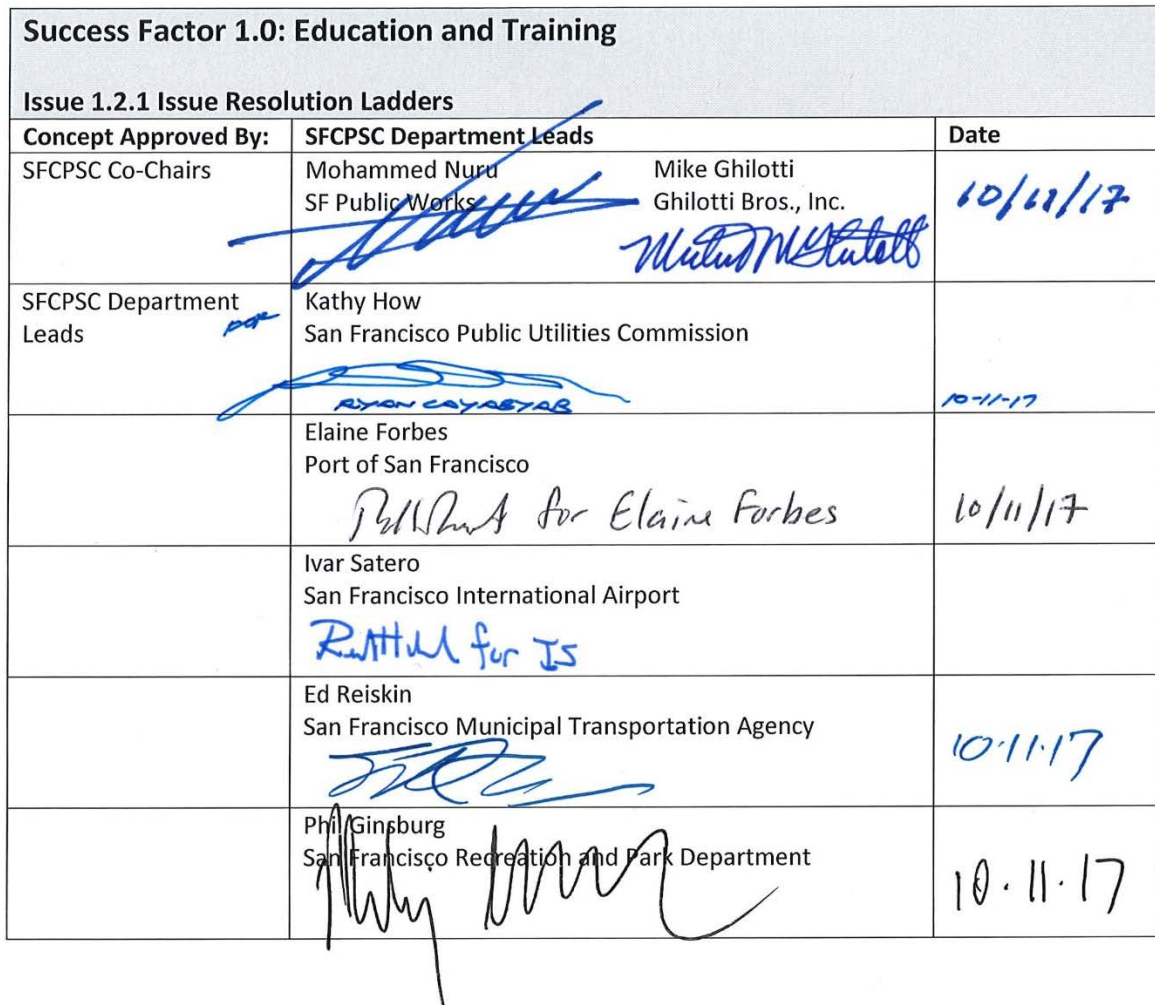 Success Factor 1.0: Education and Training
Issue 1.2.1 Issue Resolution Ladders
Concept Approved By: SFCPSC Department Leads Date
SFCPSC Co-Chairs Mohammed Nuru Mike Ghilotti
SF Public Works Ghilotti Bros., Inc.
SFCPSC Department Kathy How
Leads San Francisco Public Utilities Commission
RYAN CAYABYAB 10-11-17
Elaine Forbes
Port of San Francisco
for Elaine Forbes 10/11/17
Ivar Satero
San Francisco International Airport
for IS
Ed Reiskin
San Francisco Municipal Transportation Agency
10.11.17
Phil Ginsburg
San Francisco Recreation and Park Department
10.11.17